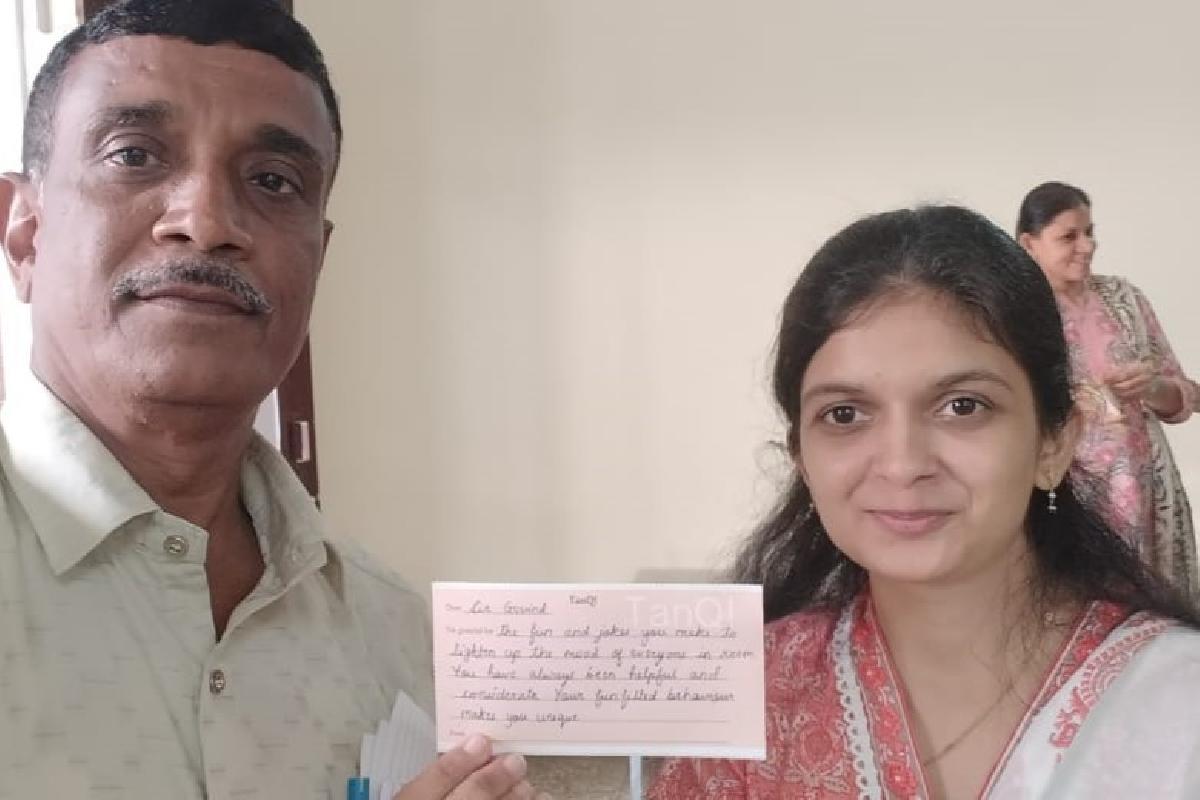 TanQ!
TanQ!
Dear Sir Govind
I'm grateful for the fun and jokes you make to
lighten up the mood of everyone in room
You have always been helpful and
considerate Your funfilled behaviour
makes you unique
From